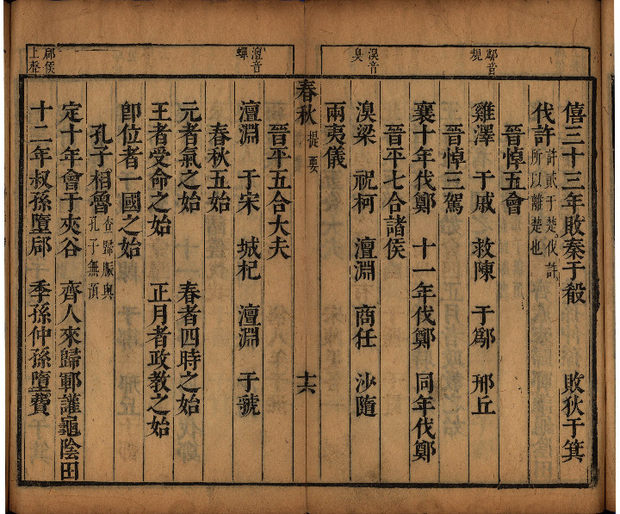 鄬音
規
僖三十三年敗秦于殽 敗狄于箕
伐許 許貳于楚伐許
所以離楚也
晉悼五會
雞澤 于戚 救陳 于鄬 邢丘
晉悼三駕
襄十年伐鄭 十一年伐鄭 同年伐鄭
晉平七合諸侯
湨音
臭
湨梁 祝柯 澶淵 商任 沙隨
兩夷儀
春秋 提要 十六
晉平五合大夫
澶音
蟬
澶淵 于宋 城杞 澶淵 于虢
春秋五始
元者氣之始 春者四時之始
王者受命之始 正月者政教之始
卽位者一國之始
孔子相魯 查歸脤與
孔子無預
定十年會于夾谷 齊人來歸鄆讙龜陰田
郈侯
上聲
十二年叔孫墮郈 季孫仲孫墮費